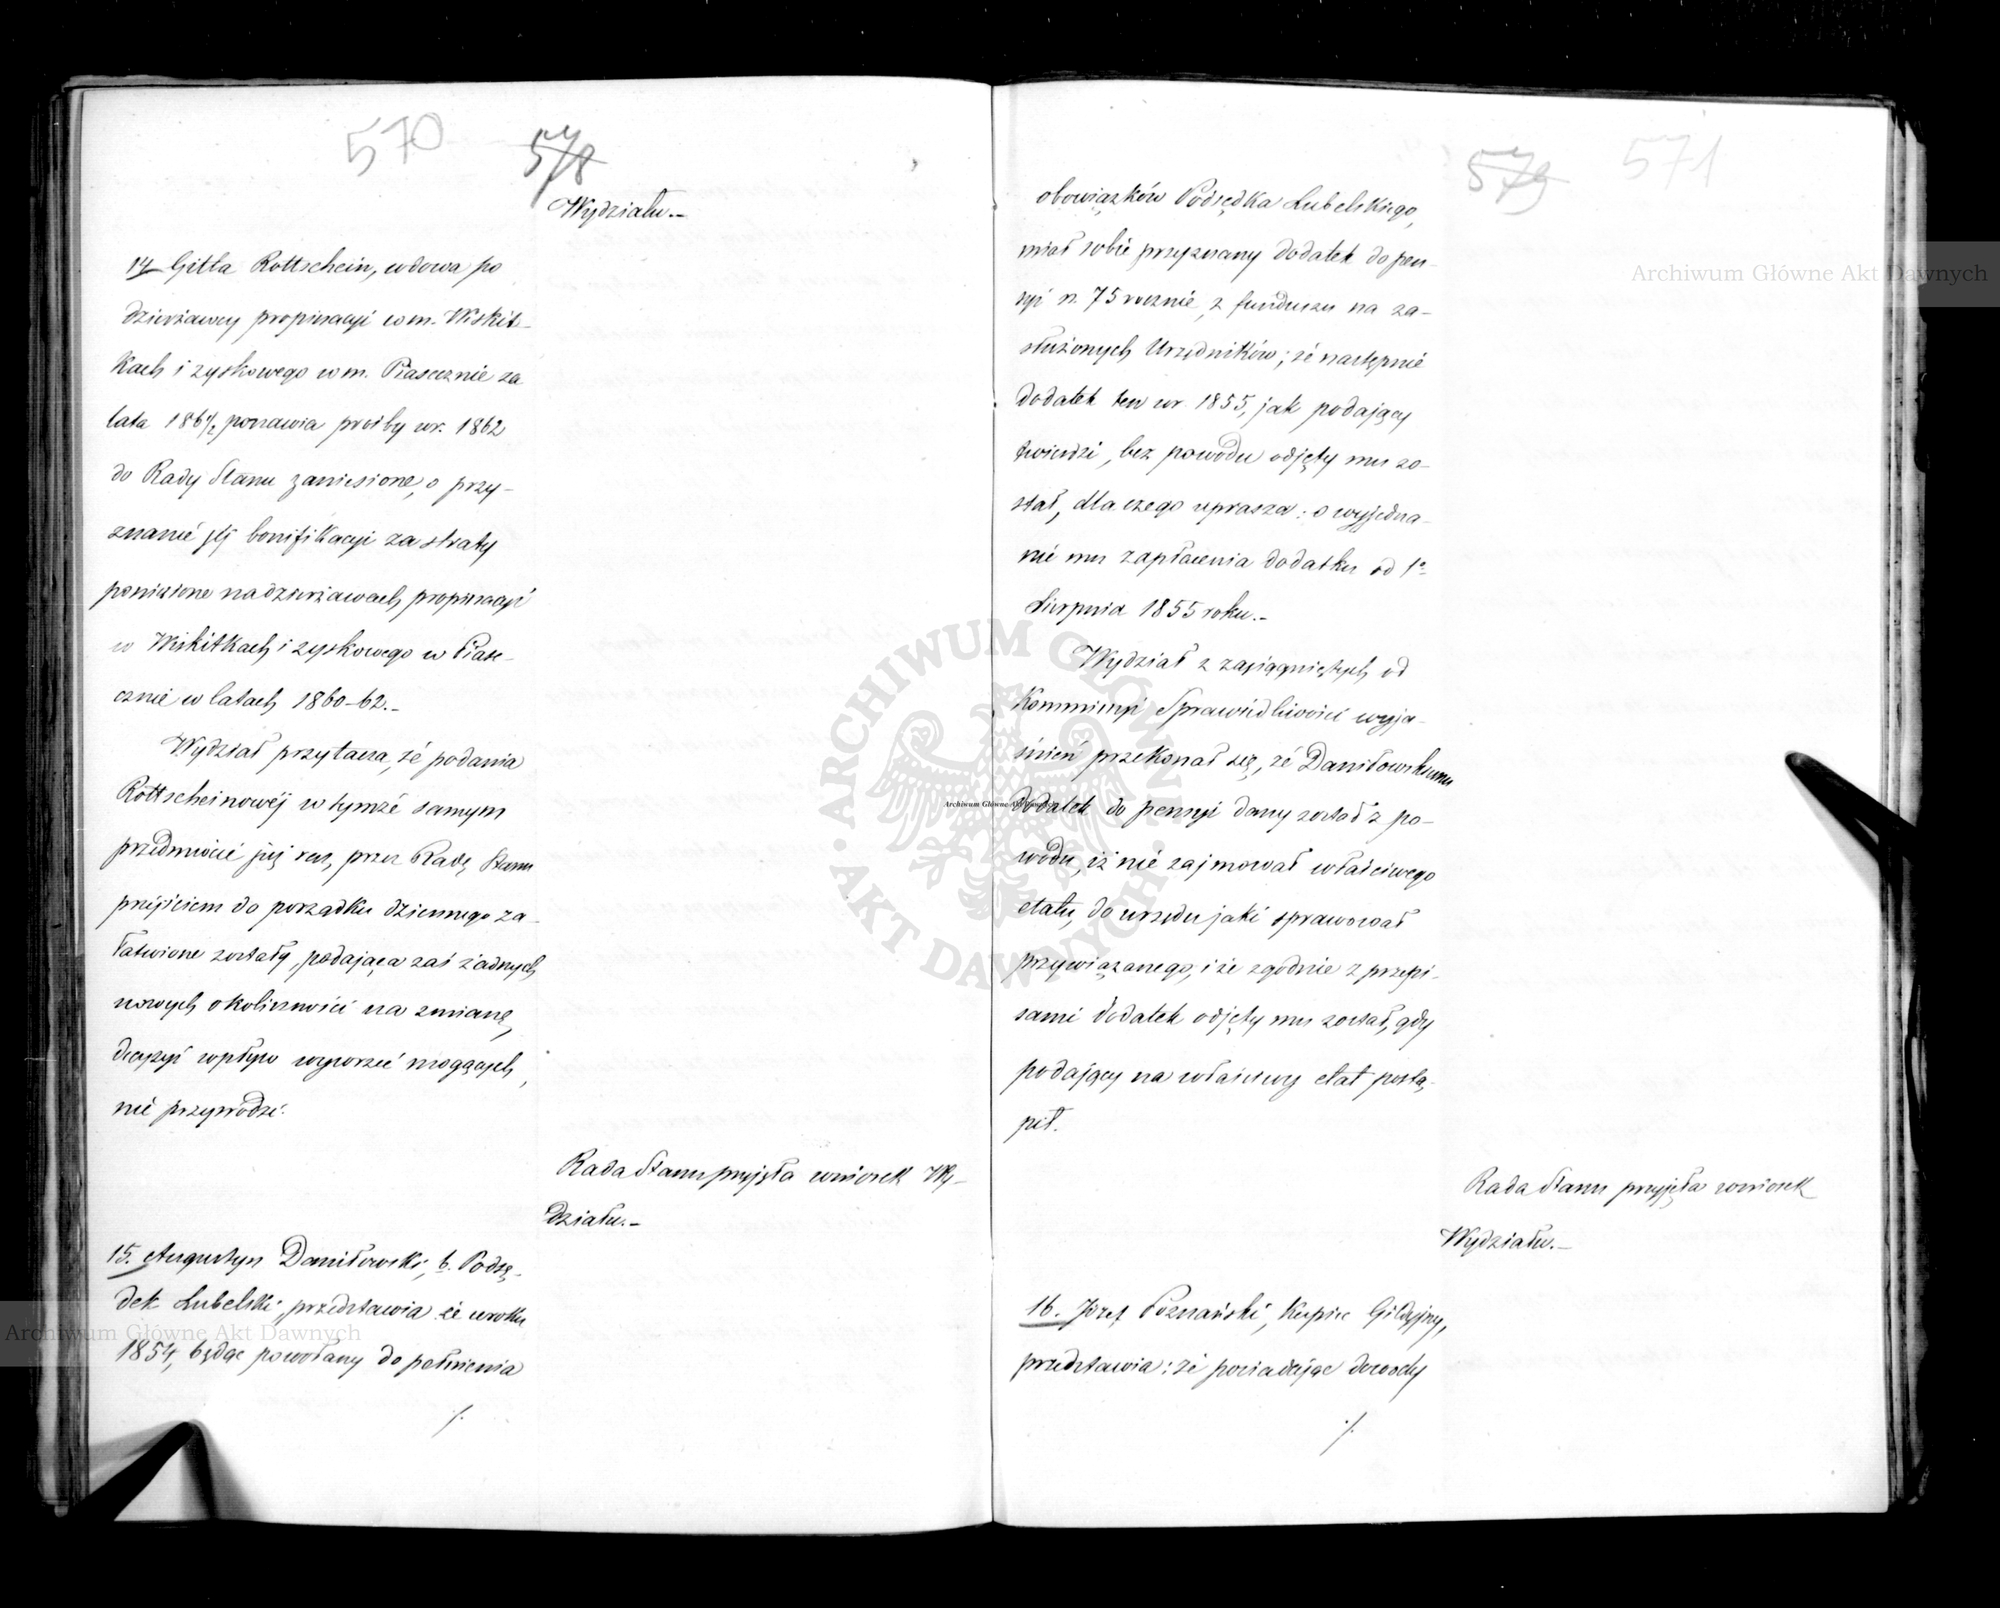 570
578
Wydziału.-
14 Gitla Rottschein, wdowa po
dzierżawcy propinacyi w m. Wiskit-
kach i zyskowego w m. Piasecznie za
lata 186½ ponawia prośby w r. 1862
do Rady Stanu zaniesione, o przy-
znanie jej bonifikacyi za straty
poniesione na dzierżawach propinacyi
w Wiskitkach i zyskowego w Piase-
cznie w latach 1860-62.-
Wydział przytacza, że podania
Rottscheinowéj w tymże samym
przedmiocie już raz, przez Radę Stanu
przejściem do porządku dziennego za-
łatwione zostały, podająca zaś żadnych
nowych okoliczności na zmianę
decyzyi wpływ wywrzeć mogących,
nie przywodzi.
Rada Stanu przyjęła wniosek Wy-
działu.-
15. Augustyn Daniłowski, b. Podsę-
dek Lubelski, przedstawia że w roku
1854, będąc powołany do pełnienia
./.
579
571
obowiązków Podsędka Lubelskiego,
miał sobie przyznany dodatek do pen-
syi r. 75 rocznie, z funduszu na za-
służonych Urzędników; że następnie
dodatek ten w r. 1855, jak podający
twierdzi, bez powodu odjęty mu zo-
stał, dla czego uprasza: o wyjedna-
nie mu zapłacenia dodatku od 1º
Sierpnia 1855 roku.-
Wydział z zasiągniętych od
Kommissyi Sprawiedliwości wyja-
śnień przekonał się, że Daniłowskiemu
dodatek do pensyi dany został z po-
wodu, iż nie zajmował właściwego
etatu, do urzędu jaki sprawował
przywiązanego, i że zgodnie z przepi-
sami dodatek odjęty mu został, gdy
podający na właściwy etat postą-
pił.
Rada Stanu przyjęła wniosek
Wydziału.-
16. Józef Poznański, Kupiec Gildyjny,
przedstawia: że posiadając dowody
./.
Archiwum Główne Akt Dawnych
Archiwum Główne Akt Dawnych
Archiwum Główne Akt Dawnych
ARCHIWUM GŁÓWNE
AKT DAWNYCH